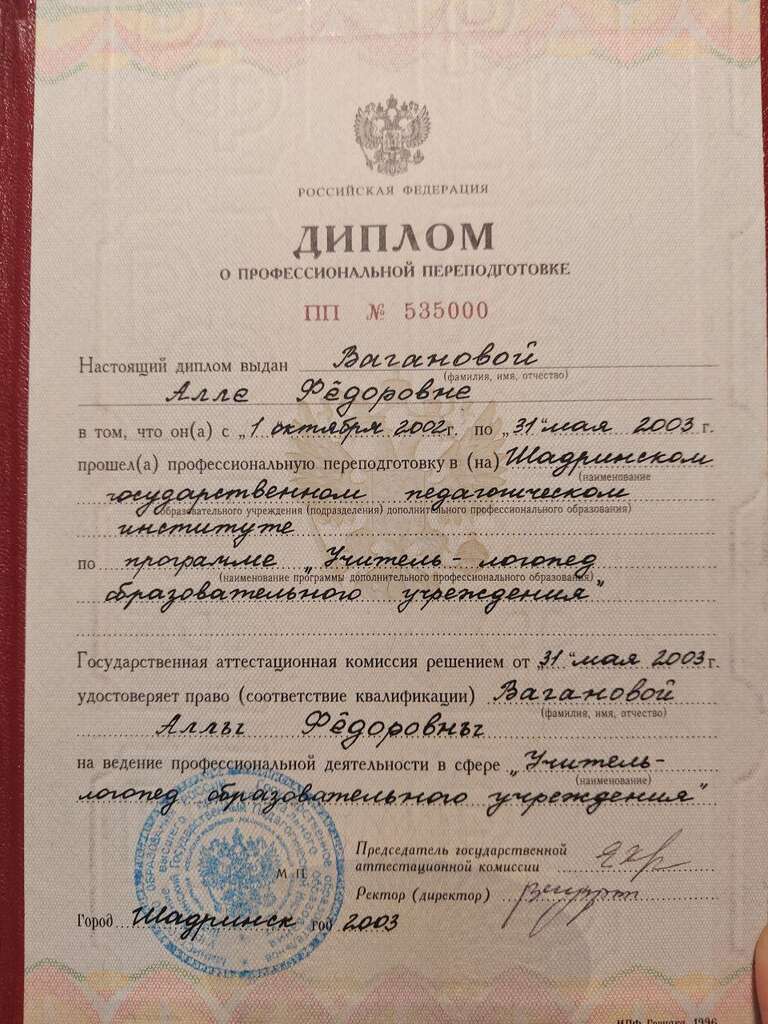 РОССИЙСКАЯ ФЕДЕРАЦИЯ
ДИПЛОМ
О ПРОФЕССИОНАЛЬНОЙ ПЕРЕПОДГОТОВКЕ
ПП № 535000
Настоящий диплом выдан Вагановой
(фамилия, имя, отчество)
Алле Фёдоровне
в том, что он(а) с „1 октября 2002 г. по „31“ мая 2003 г.
прошел(а) профессиональную переподготовку в (на) Шадринском
(наименование
государственном педагогическом
образовательного учреждения (подразделения) дополнительного профессионального образования)
институте
по программе „Учитель - логопед
(наименование программы дополнительного профессионального образования)
образовательного учреждения"
Государственная аттестационная комиссия решением от „31“ мая 2003 г.
удостоверяет право (соответствие квалификации) Вагановой
(фамилия, имя, отчество)
Аллы Фёдоровны
на ведение профессиональной деятельности в сфере „Учитель-
(наименование)
логопед образовательного учреждения"
Председатель государственной
аттестационной комиссии
М П
Ректор (директор)
Город Шадринск год 2003